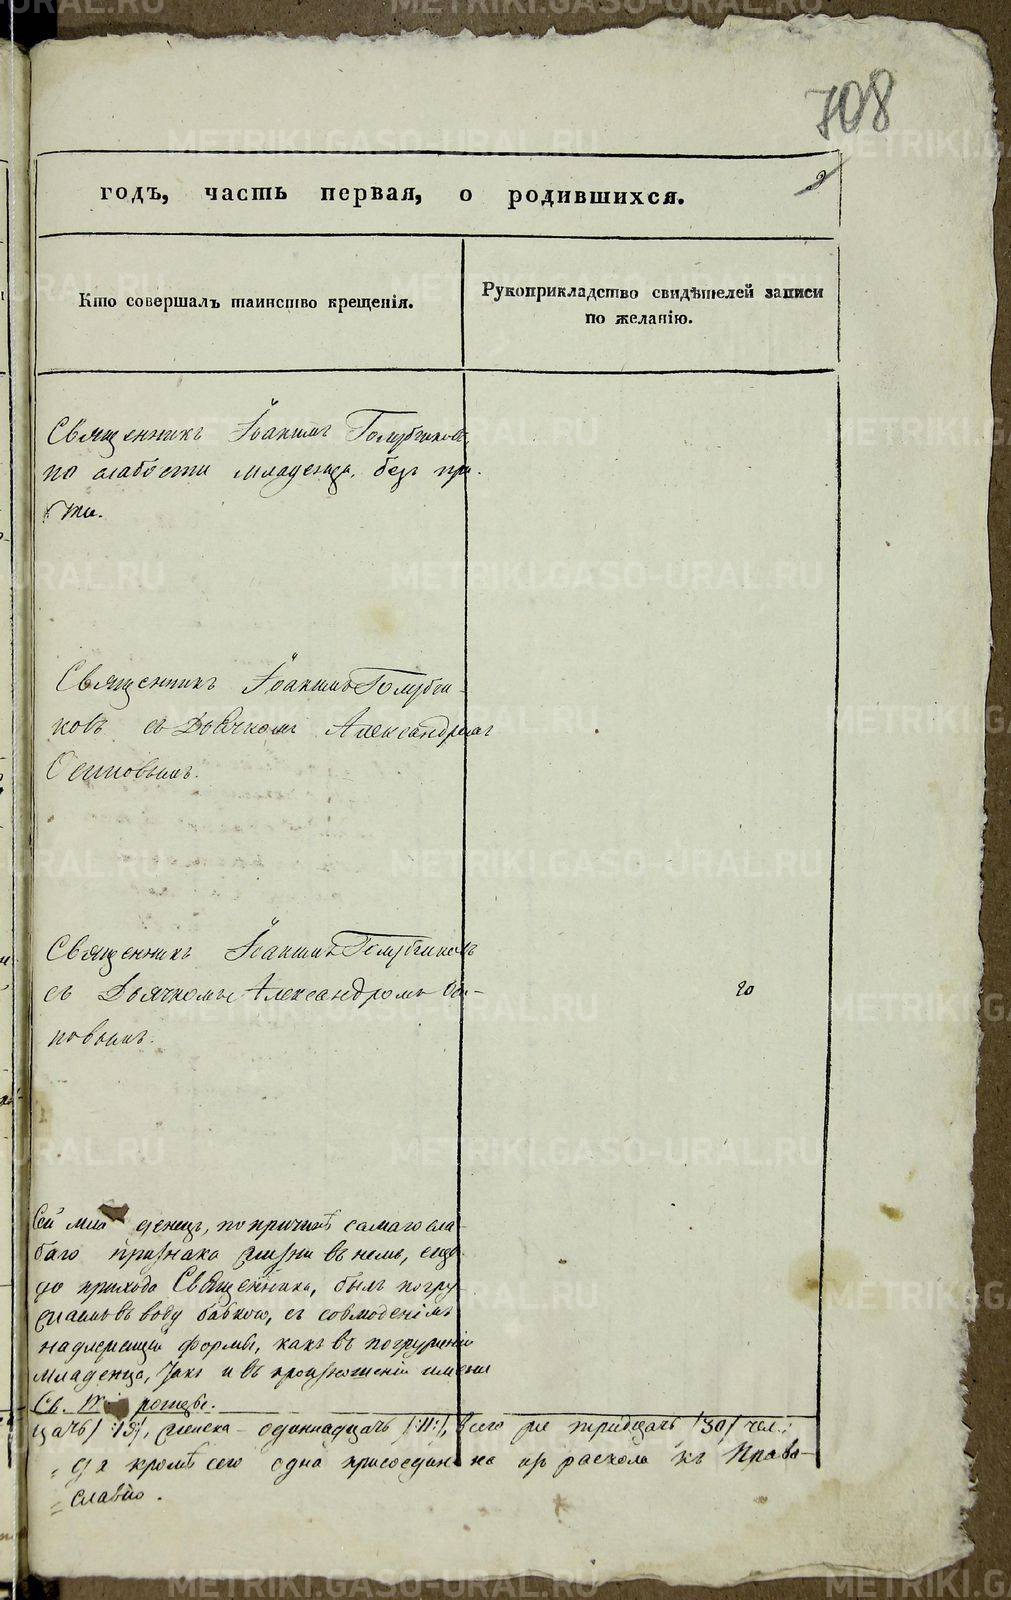 708
2
годъ, часть первая, о родившихся.
Кто совершалъ таинство крещенія.
Рукоприкладство свидѣтелей записи
по желанію.
Священникъ Іоакимъ Голубчиковъ
по слабости младенца, безъ при-
Священникъ Іоакимъ Голубчи-
ковъ съ Дьячкомъ Александромъ
Осиповымъ.
Священникъ Іоакимъ Голубчиковъ
съ Дьячкомъ Александромъ Оси-
повымъ.
20
Сей мла денецъ, по причинѣ самаго сла-
баго признака жизни въ немъ, еще
до прихода Священника, былъ погру-
жаемъ въ воду бабкою, съ соблюденіемъ
надлежащей формы, какъ въ погруженіи
младенца, такъ и въ произношеніи имени
Св. рожцы.
цать /:19:/, женска одиннадцать /:11:/, всего же тридцать /30/ чел.;
да кромѣ сего одна присоединена изъ раскола къ Право-
славію.
METRIKI.GASO-URAL.RU